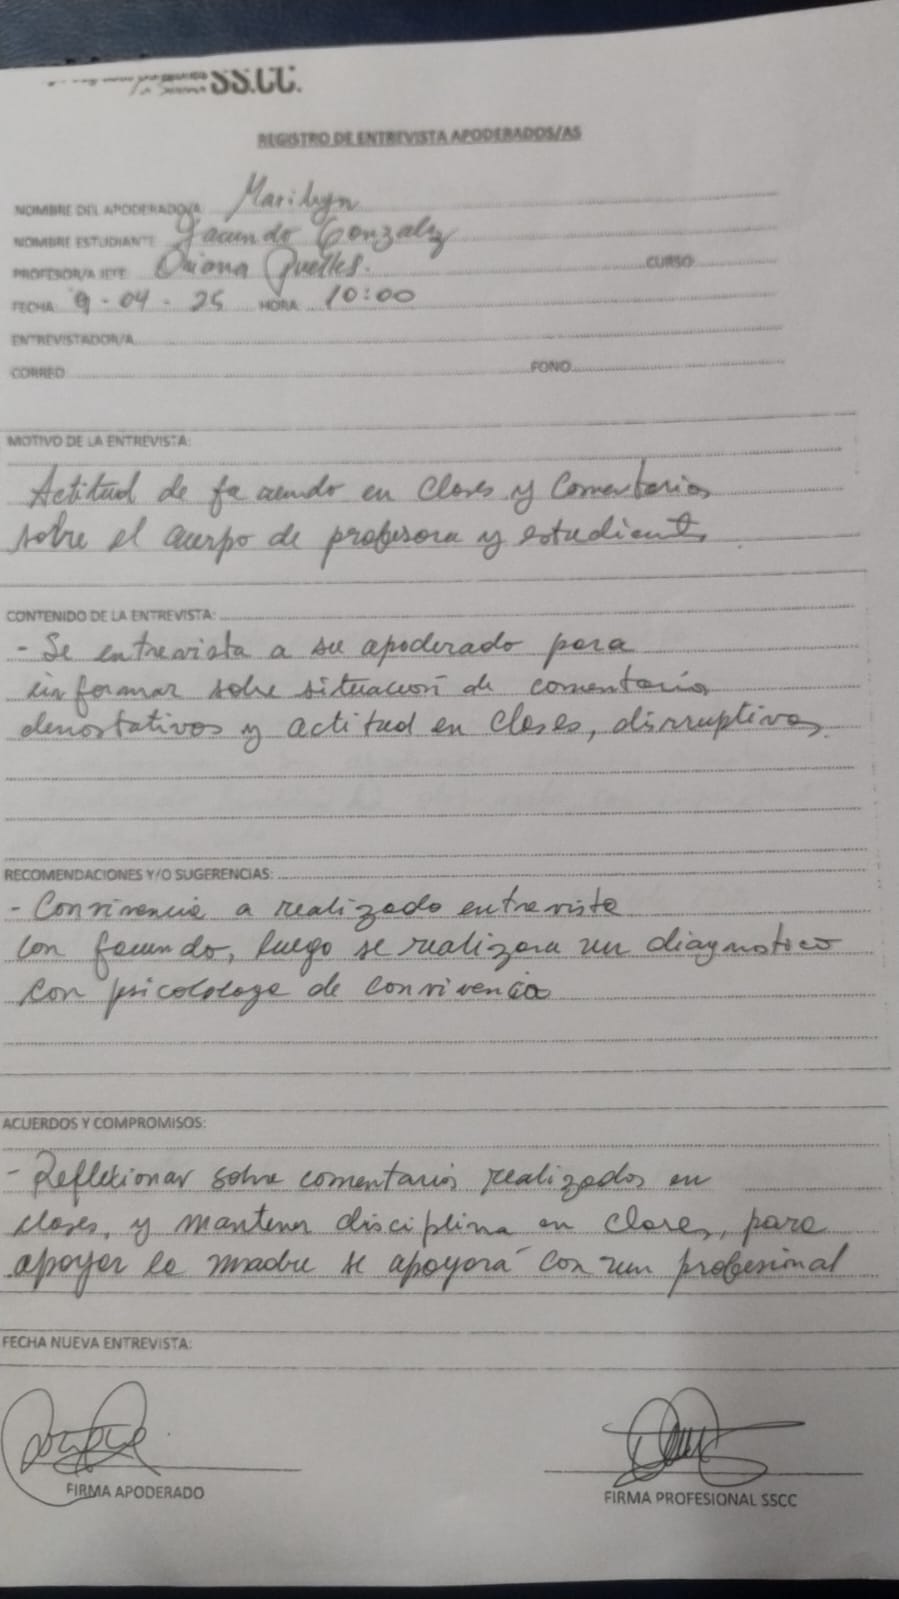 SS.CC.
REGISTRO DE ENTREVISTA APODERADOS/AS
NOMBRE DEL APODERADO/A Marilyn
NOMBRE ESTUDIANTE Facundo Gonzalez
PROFESOR/A JEFE Oriana CURSO
FECHA 9-04-25 HORA 10:00
ENTREVISTADOR/A
CORREO FONO
MOTIVO DE LA ENTREVISTA:
Actitud de facundo en clases y comentarios
sobre el cuerpo de profesora y estudiante
CONTENIDO DE LA ENTREVISTA:
- Se entrevista a su apoderado para
informar sobre situación de comentarios
denostativos y actitud en clases, disruptivas
RECOMENDACIONES Y/O SUGERENCIAS:
- Convivencia a realizado entrevista
con facundo, luego se realizara un diagnostico
con psicologa de convivencia
ACUERDOS Y COMPROMISOS:
- Reflexionar sobre comentarios realizados en
clases, y mantener disciplina en clases, para
apoyar la madre se apoyará con un profesional
FECHA NUEVA ENTREVISTA:
FIRMA APODERADO
FIRMA PROFESIONAL SSCC